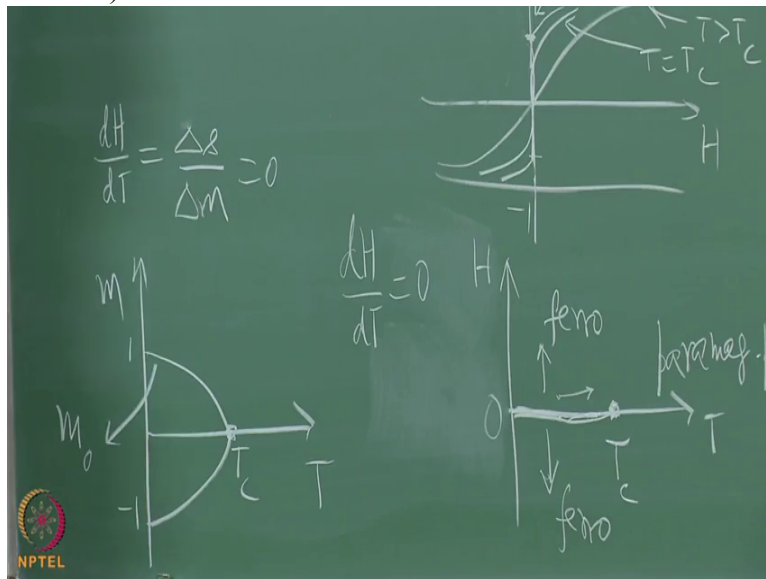 T>T_C
T=T_C
H
-1
dH/dT = Δs/Δm = 0
dH/dT = 0
m
1
m_0
T_C
T
-1
H
ferro
paramag.
0
T_C
T
ferro
NPTEL